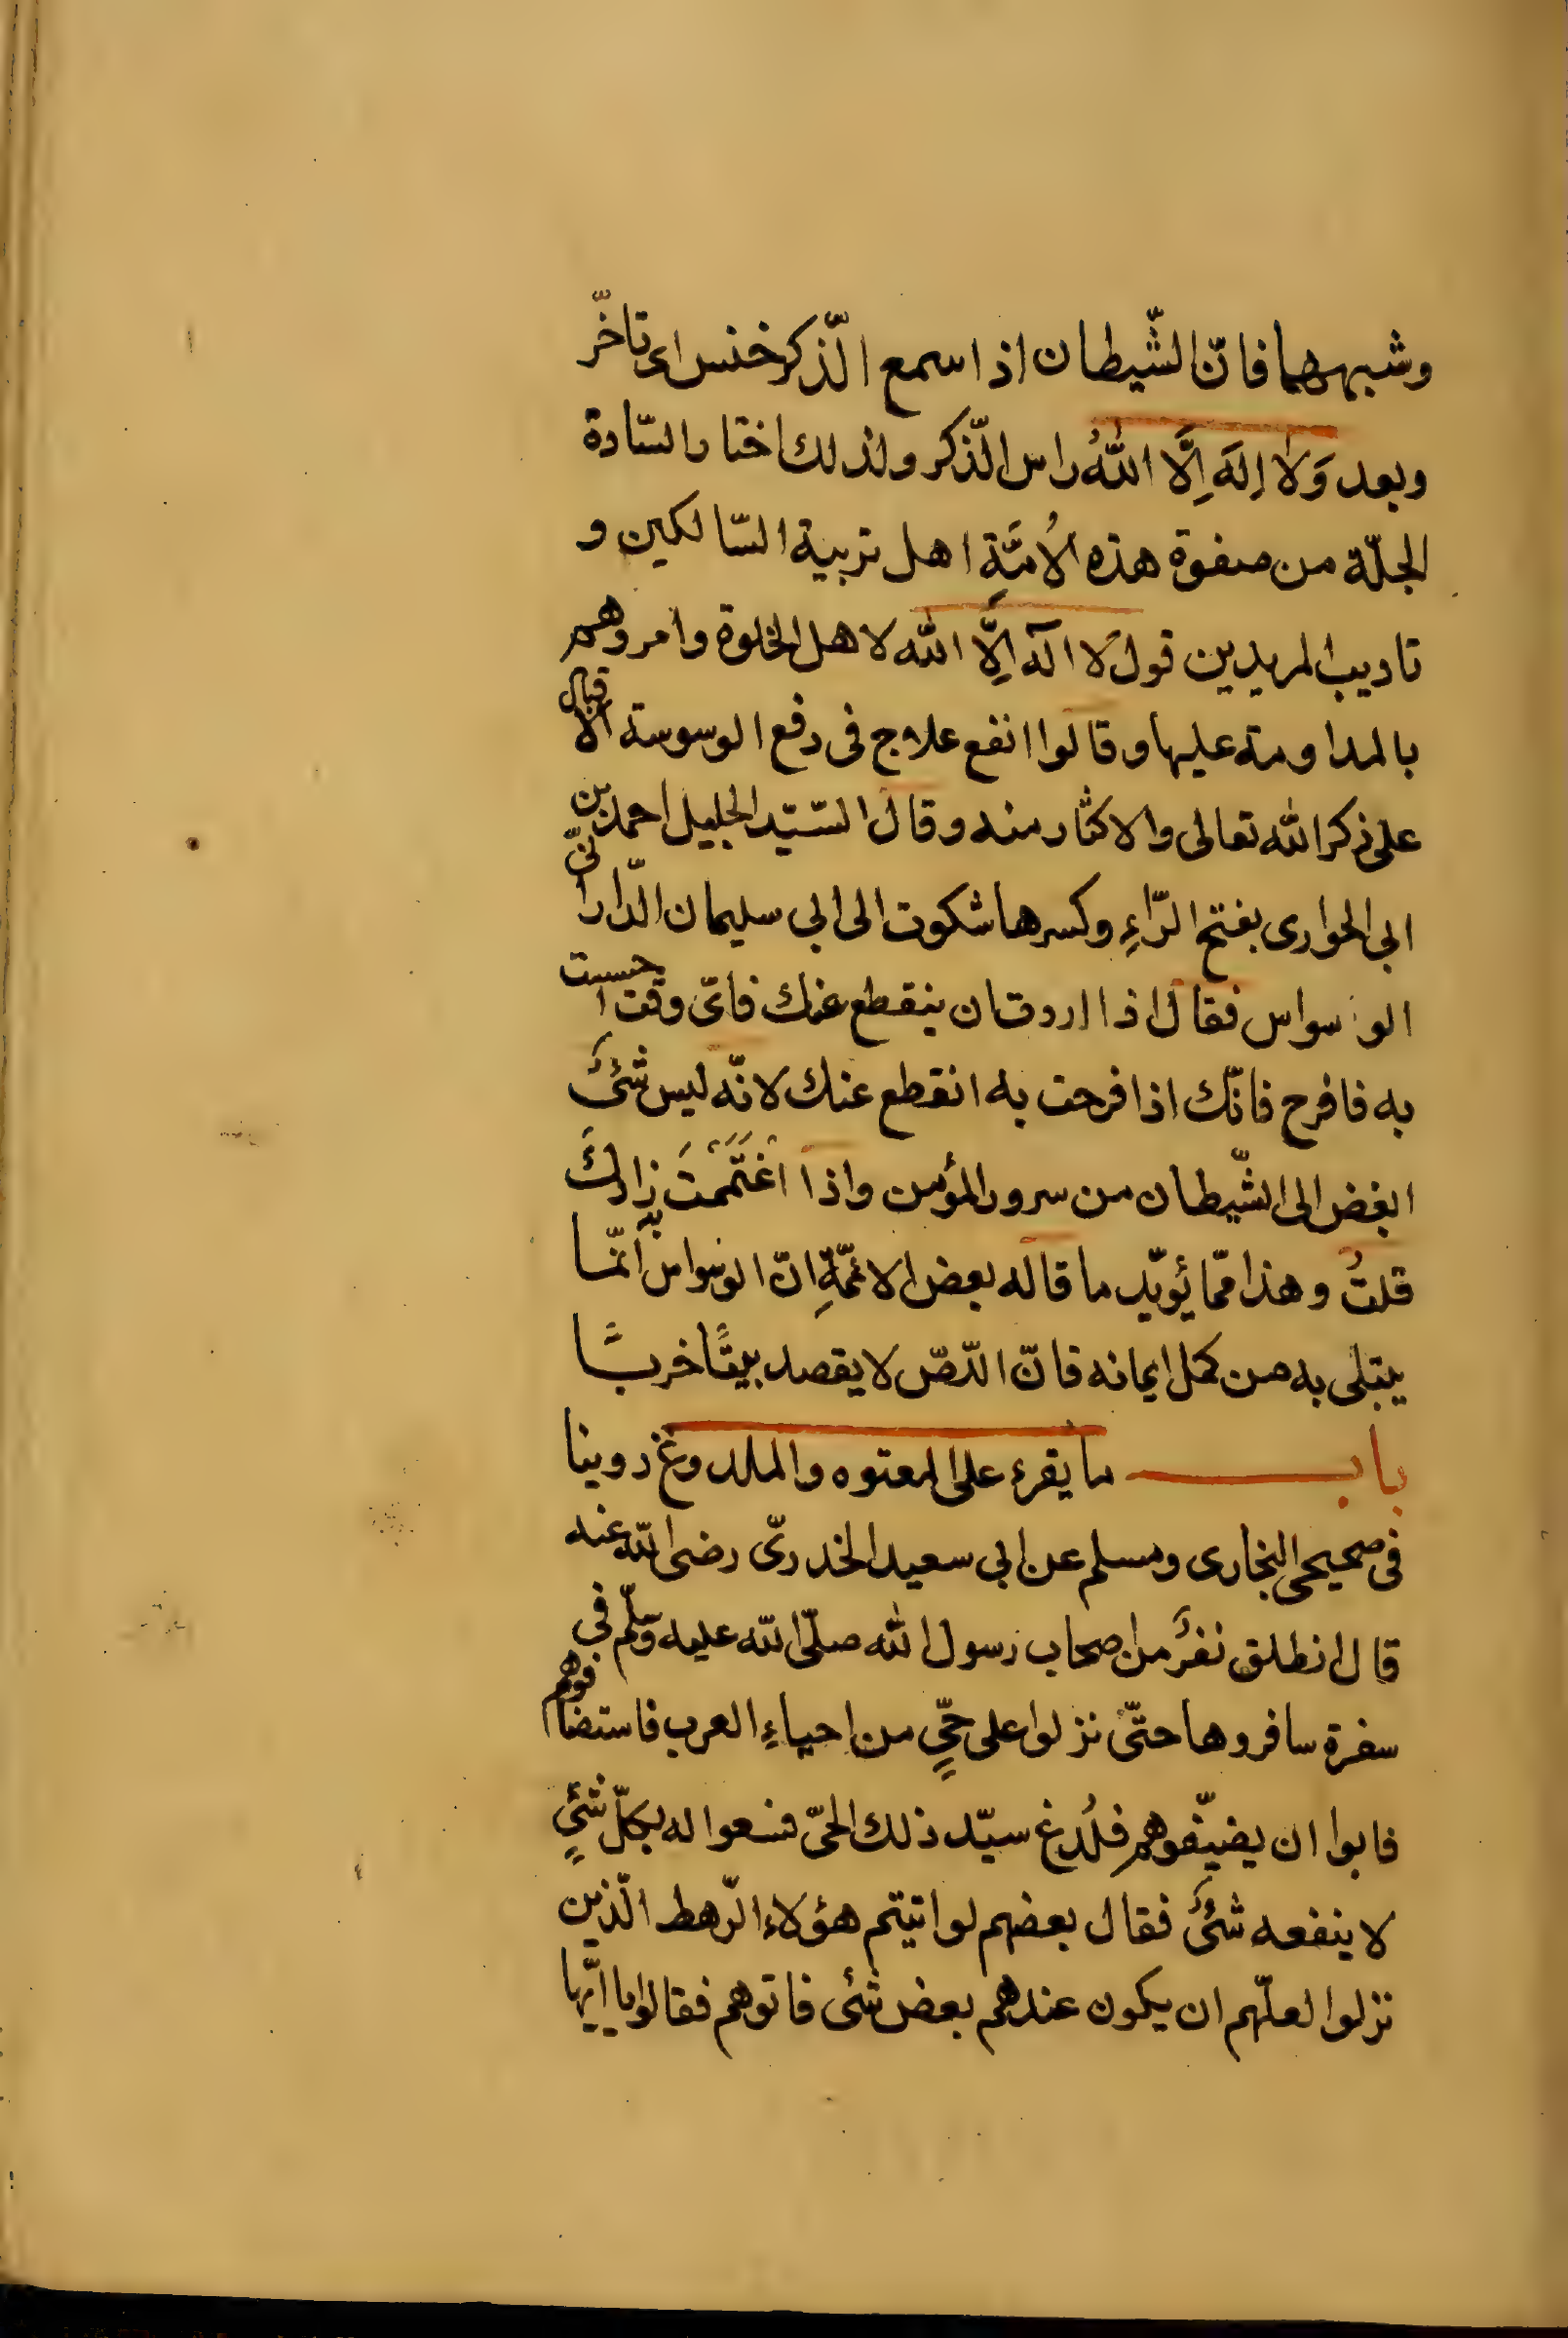 وشبههما فانّ الشّيطان اذا سمع الّذكر خنس اى تاخّر
وبعد وَلا اِلهَ اِلَّا اللّٰهُ راس الّذكر ولذلك اختار السّادة
الجلّة من صفوة هذه الاُمَّةِ اهل تربية السّالكين و
تاديب المريدين قول لا اله اِلَّا اللّٰه لاهل الخلوة وامروهم
بالمداومة عليها وقالوا انفع علاج فى دفع الوسوسة الاقبال
على ذكر اللّٰه تعالى والاكثار منه وقال السّيّد الجليل احمد بن
ابى الحوارى بفتح الرّاءِ وكسرها شكوت الى ابى سليمان الدّارانّى
الوسواس فقال اذا اردت ان ينقطع عنك فاىّ وقت احسست
به فافرح فانّك اذا فرحت به انقطع عنك لانّه ليس شئٌ
ابغض الى الشّيطان من سرور المؤمن واذا اغْتَمَمْتَ زادكَ
قلتُ وهذا ممّا يؤيّد ما قاله بعض الائمّةِ انّ الوسواس انّما
يبتلى به من كمل ايمانه فانّ اللّصّ لا يقصد بيتًا خربًا
باب ما يقرء على المعتوه والملدوغ روينا
فى صحيحى البخارى ومسلم عن ابى سعيد الخدرىّ رضى اللّٰه عنه
قال انطلق نفرٌ من اصحاب رسول اللّٰه صلّى اللّٰه عليه وسلّم فى
سفرة سافروها حتّى نزلوا على حىٍّ من احياءِ العرب فاستضافوهم
فابوا ان يضيّفوهم فلُدغ سيّد ذلك الحىّ فسعوا له بكلّ شئٍ
لا ينفعه شئٌ فقال بعضهم لو اتيتم هؤلاء الّرهط الّذين
نزلوا لعلّهم ان يكون عندهم بعض شئى فاتوهم فقالوا يا ايّها